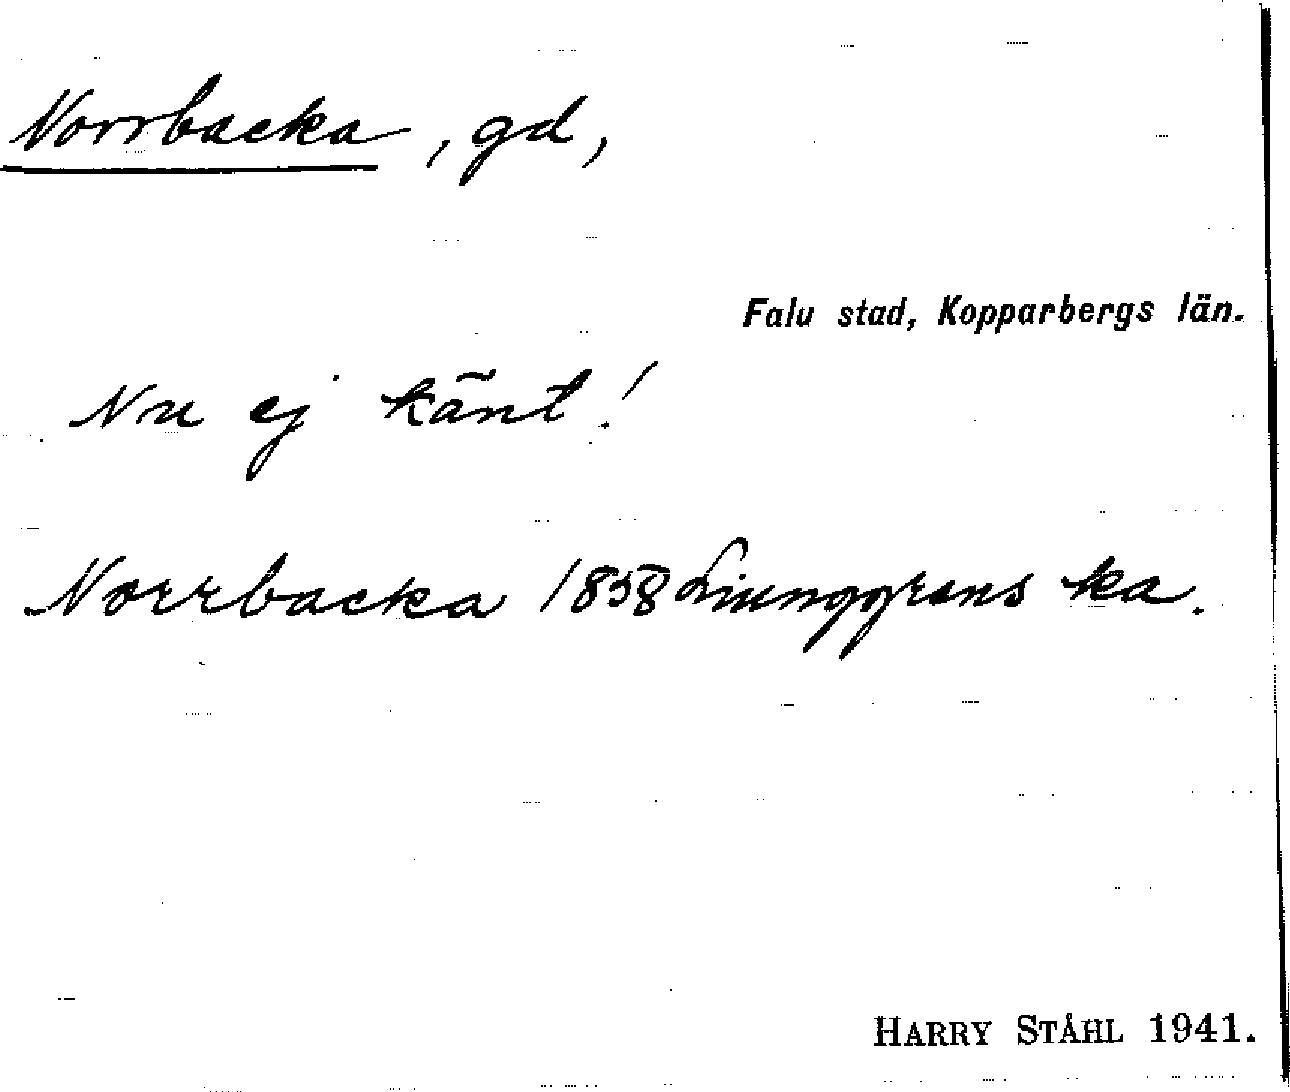 Norrbacka, gd,
Falu stad, Kopparbergs län.
Nu ej känt!
Norrbacka 1858 Ljunggrens ka.
HARRY STÅHL 1941.